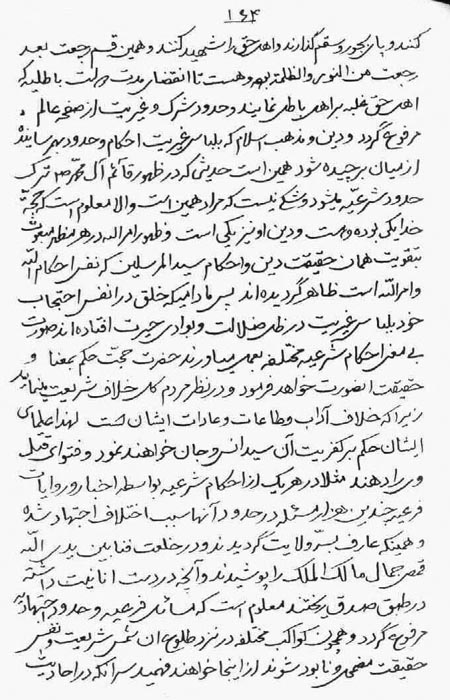 ۱۶۴
کنند و پای بجور و ستم گذارند و اهل حق را شهید کنند و همین قسم رجعت بعد
رجعت من النور و الظلمة بوده و هست تا انقضای مدت دولت باطلیه که
اهل حق غلبه بر اهل باطل نمایند و حدود شرک و غیریت از صفحه عالم
مرفوع گردد و دین و مذهب اسلام که بلباس غیریت احکام و حدود بهم رسانیده
از میان برچیده شود همین است حدیثی که در ظهور قائم آل محمد ص ترک
حدود شرعیه میشود و شکی نیست که مراد همین است والا معلوم است که حجة
خدا یکی بوده و هست و دین او نیز یکی است و ظهور امر الله در هر مظهر مبعوث
بتقویت همان حقیقت دین و احکام سید المرسلین که نفس احکام الله
و امر الله است ظاهر گردیده اند پس مادامیکه خلق در انفس احتجاب
خود بلباس غیریت در ظل ضلالت و بوادی حیرت افتاده اند صورت
بی مغز احکام شرعیه مختلفه بعمل میاورند حضرت حجت حکم بمعنا و
حقیقت انصورت خواهد فرمود و در نظر مردم کل خلاف شریعت مینماید
زیرا که خلاف آداب و طاعات و عادات ایشان است لهذا علمای
ایشان حکم بر کفریت آن سید انس و جان خواهند نمود و فتوای قتل
وی را دهند مثلا در هر یک از احکام شرعیه بواسطه اخبار و روایات
فرعیه چندین هزار مسئله در حدود آنها بسبب اختلاف اجتهاد شده
و همینکه عارف بسر ولایت گردیدند و در خلعت فنا بین یدی الله
قمص جمال مالک الملک را پوشیدند و آنچه در دست انانیت داشته
در طبق صدق ریختند معلوم است که مسائل فرعیه و حدود اجتهادیه
مرفوع گردد و همچون کواکب مختلفه در نزد طلوع ان شمس شریعت و نفس
حقیقت مضمحل و نابود شوند از اینجا خواهند فهمید سر آنکه در احادیث